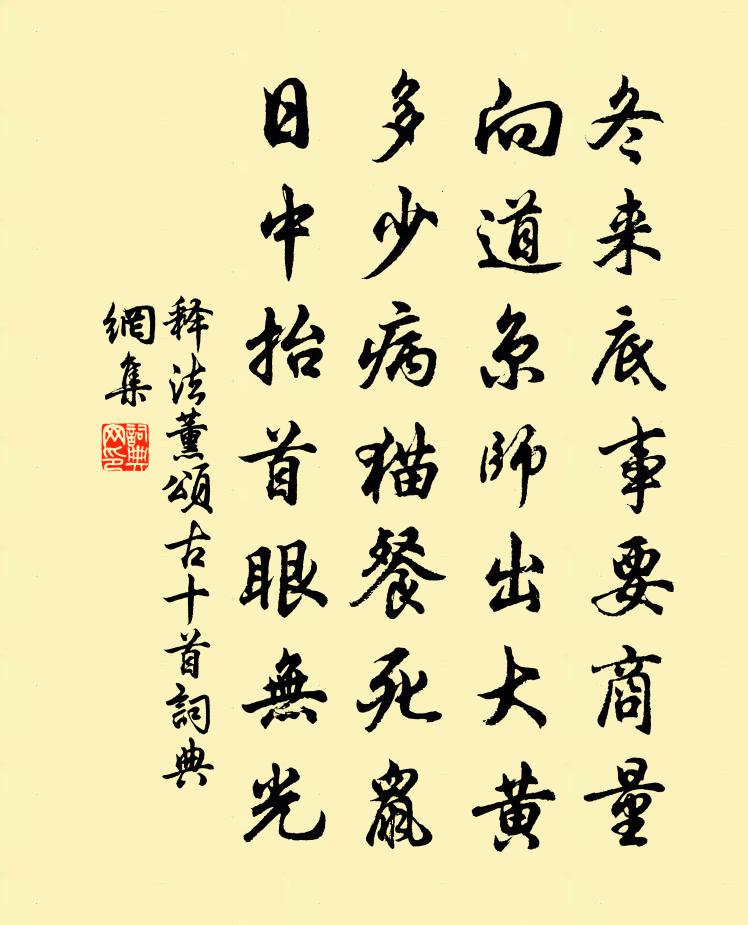 冬来底事要商量
向道京師出大黄
多少病猫餐死鼠
日中抬首眼無光
释法薰頌古十首詞典
網集
詞典网印